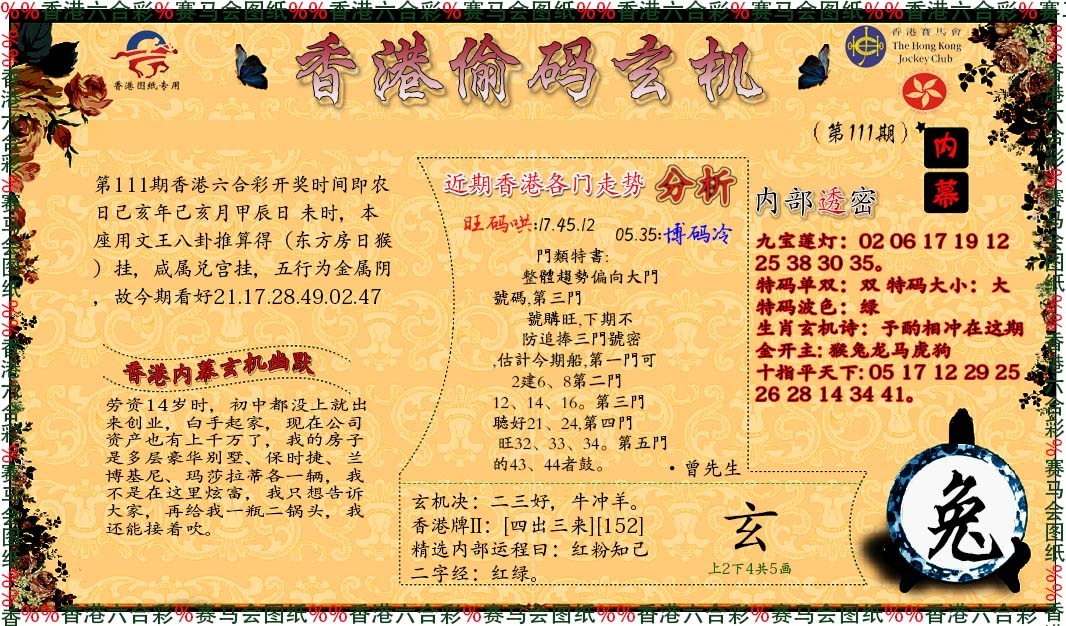 %%香港六合彩%赛马会图纸%%香港六合彩%赛马会图纸%%香港六合彩%赛马会图纸%%香港六合彩%赛
香港图纸专用
香港偷码玄机
香港賽馬會
The Hong Kong
Jockey Club
(第111期)
内
幕
第111期香港六合彩开奖时间即农
日己亥年己亥月甲辰日 未时，本
座用文王八卦推算得（东方房日猴
）挂，咸属兑宫挂，五行为金属阴
，故今期看好21.17.28.49.02.47
香港内幕玄机幽默
劳资14岁时，初中都没上就出
来创业，白手起家，现在公司
资产也有上千万了，我的房子
是多层豪华别墅、保时捷、兰
博基尼、玛莎拉蒂各一辆，我
不是在这里炫富，我只想告诉
大家，再给我一瓶二锅头，我
还能接着吹。
近期香港各门走势 分析
旺码哄:17.45.12
05.35:博码冷
門類特書:
整體趨勢偏向大門
號碼,第三門
號購旺,下期不
防追捧三門號密
,估計今期船,第一門可
2建6、8第二門
12、14、16。第三門
聽好21、24,第四門
旺32、33、34。第五門
的43、44者鼓。
·曾先生
玄机决：二三好，牛冲羊。
香港牌II：[四出三来][152]
精选内部运程曰：红粉知己
二字经：红绿。
玄
上2下4共5画
内部透密
九宝莲灯：02 06 17 19 12
25 38 30 35。
特码单双：双 特码大小：大
特码波色：绿
生肖玄机诗：予酌相冲在这期
金开主: 猴兔龙马虎狗
十指平天下: 05 17 12 29 25
26 28 14 34 41。
兔
香%%香港六合彩%赛马会图纸%%香港六合彩%赛马会图纸%%香港六合彩%赛马会图纸%%香港六合彩%